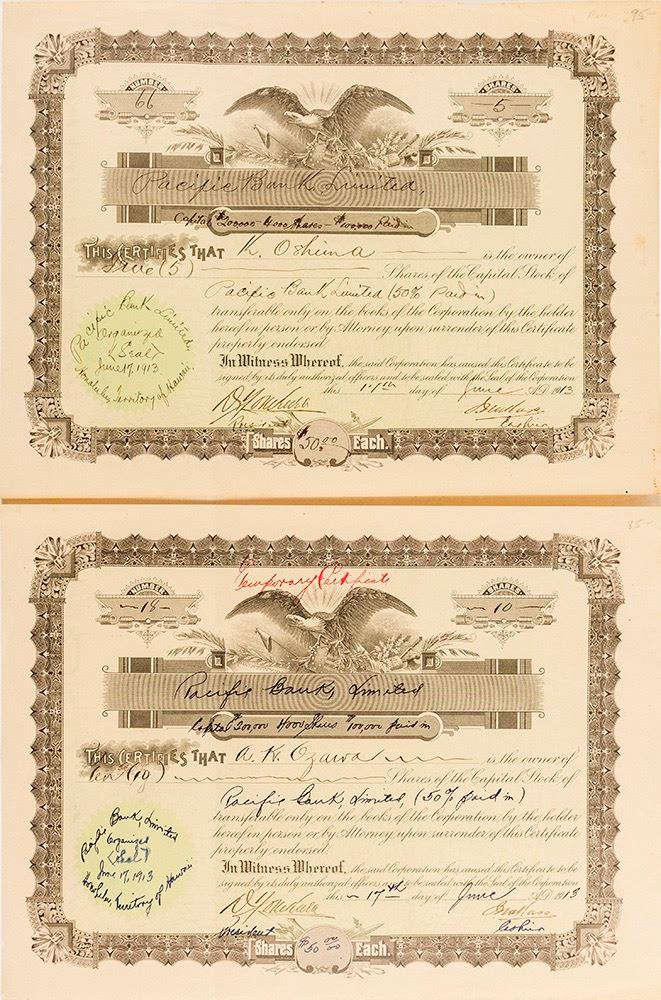 95-
NUMBER
66
SHARES
5
Pacific Bank Limited,
Capital $200000 - 4000 Shares - $100000 Paid in
THIS CERTIFIES THAT K. Oshima is the owner of
Five (5) Shares of the Capital Stock of
Pacific Bank Limited (50% Paid in)
transferable only on the books of the Corporation by the holder
hereof in person or by Attorney upon surrender of this Certificate
properly endorsed.
In Witness Whereof, the said Corporation has caused this Certificate to be
signed by its duly authorized officers and to be sealed with the Seal of the Corporation
this 17th day of June A.D. 1913
President
Cashier
Shares $50.00 Each.
Pacific Bank Limited,
Organized
(Seal)
June 17, 1913
Honolulu, Territory of Hawaii
85-
Temporary Certificate
NUMBER
18
SHARES
10
Pacific Bank, Limited
Capital $200,000 4000 Shares $100,000 paid in
THIS CERTIFIES THAT A. K. Ozawa is the owner of
Ten (10) Shares of the Capital Stock of
Pacific Bank, Limited (50% paid in)
transferable only on the books of the Corporation by the holder
hereof in person or by Attorney upon surrender of this Certificate
properly endorsed.
In Witness Whereof, the said Corporation has caused this Certificate to be
signed by its duly authorized officers and to be sealed with the Seal of the Corporation
this 17th day of June A.D. 1913
President
Cashier
Shares $50 00/00 Each.
Pacific Bank, Limited
Organized
(Seal)
June 17, 1913
Honolulu, Territory of Hawaii